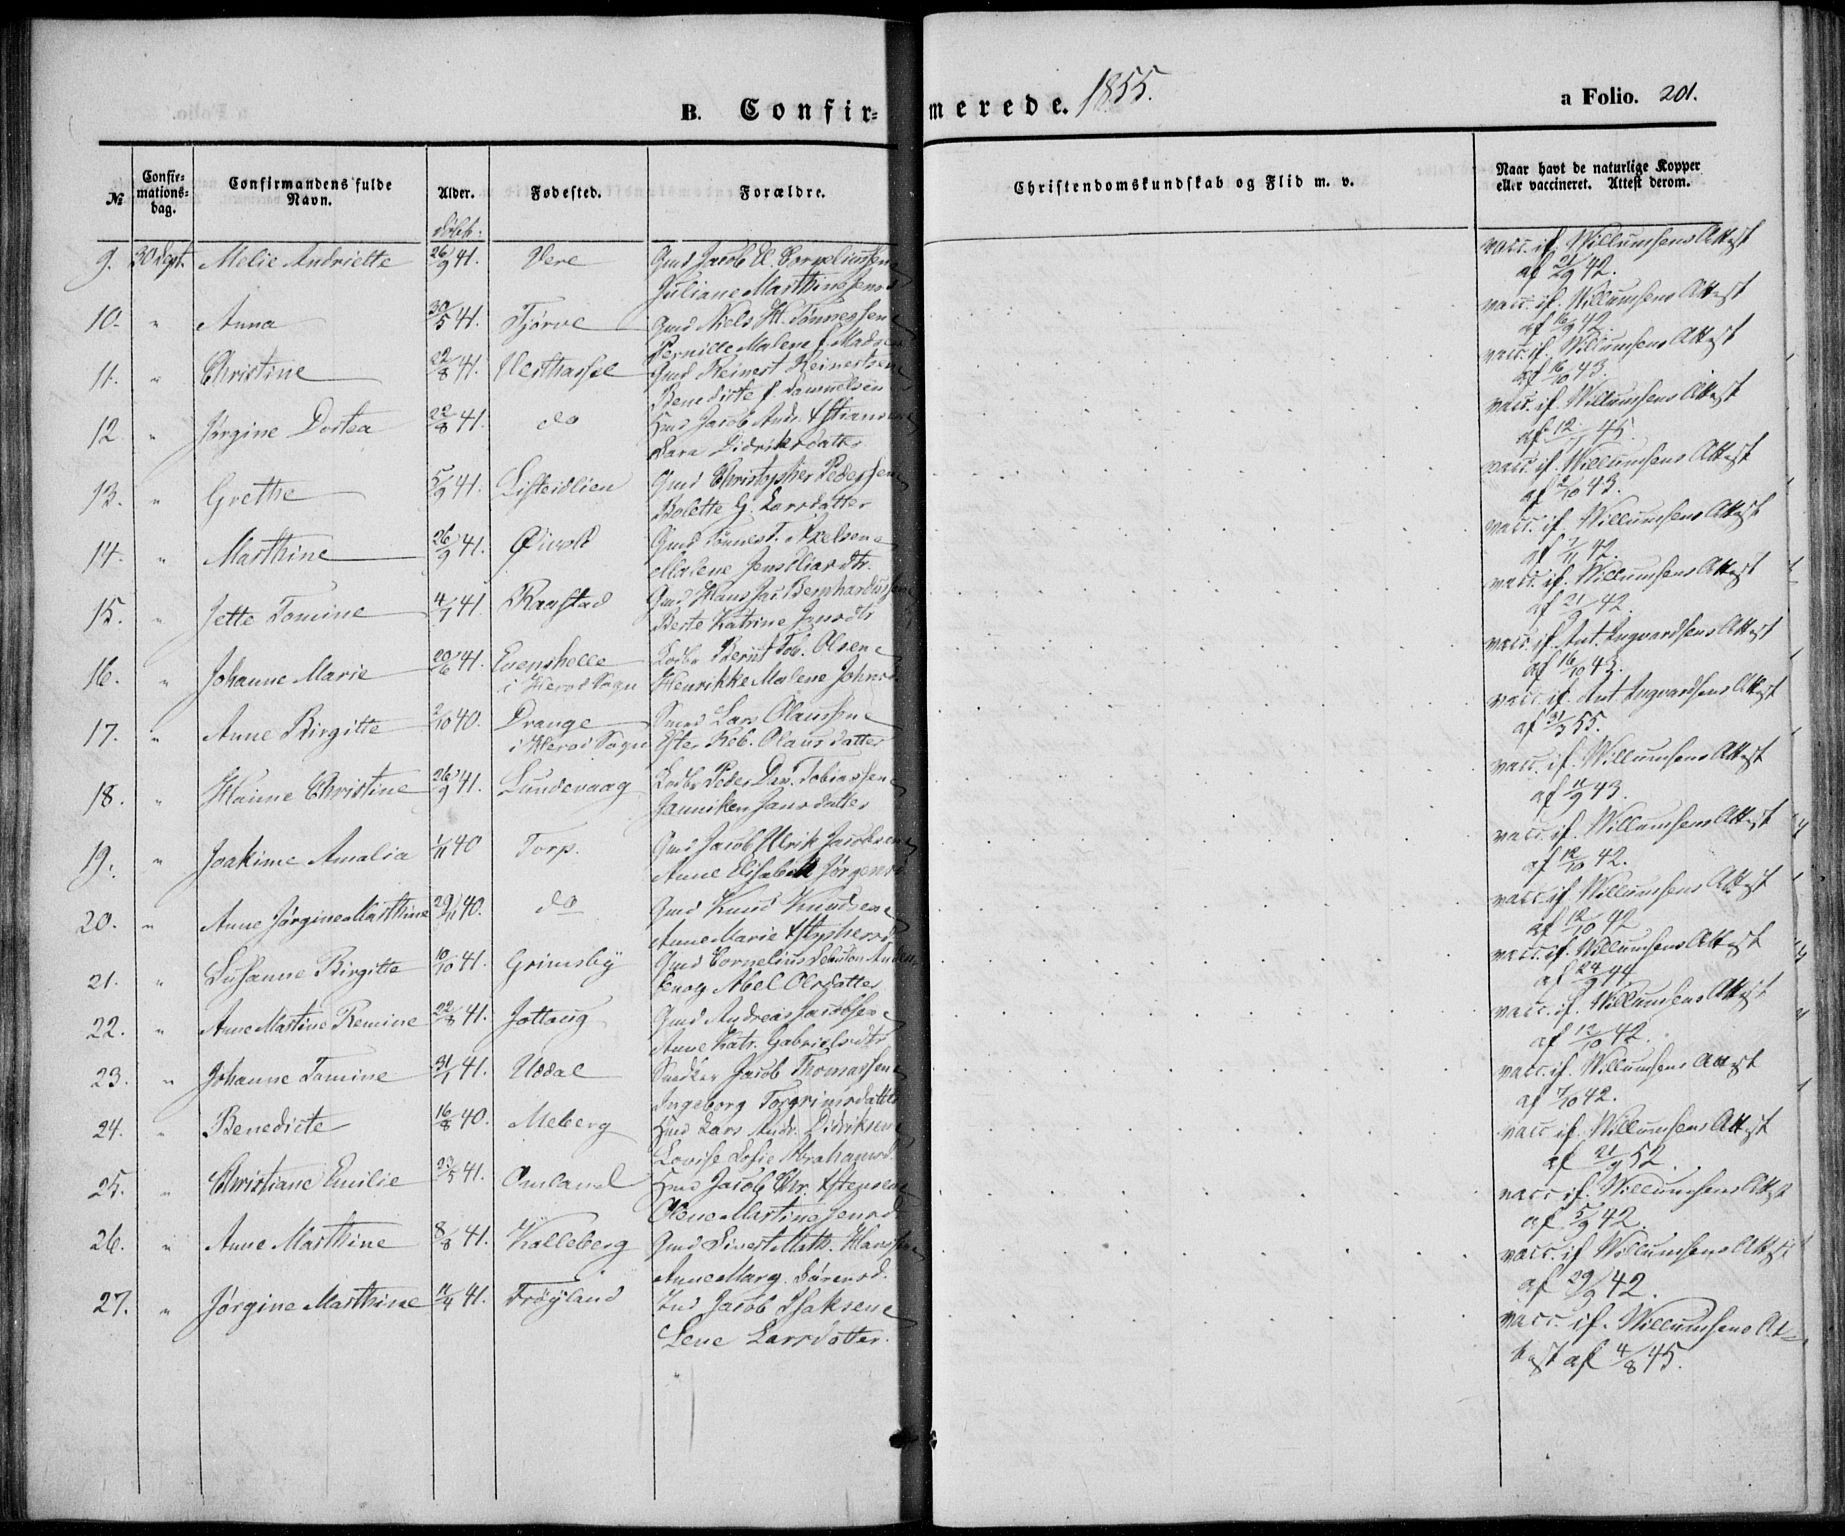 B. Confir-merede. 1855.
a Folio. 201.
№ Confir-mations-dag. Confirmandens fulde Navn. Alder. Fødested. Forældre. Christendomskundskab og Flid m. v. Naar havt de naturlige Kopper eller vaccineret. Attest derom.
døbt:
9. 30 Sept. Melie Andriette 26/9 41. Vere Gmd Jacob El. Corneliussen vacc. if. Willumsens Attest
Juliane Marthine Jensd af 21/9 42.
10. " Anna 30/5 41. Tjørve Gmd Niels H. Tønnessen vacc. if. Willumsens Attest
Pernille Malene f. Madsen af 16/9 42.
11. " Christine 22/8 41. Vesthassel Gmd Reinert Reinertsen vacc. if. Willumsens Attest
Benedicte f. Samuelsen af 16/10 43.
12. " Jørgine Dortea 22/8 41. do Jacob Andr. vacc. if. Willumsens Attest
Sara Didriksdatter af 12/ 45.
13. " Grethe 5/9 41. Listeidlien Gmd Christopher Pedersen vacc. if. Willumsens Attest
Bolette G. Larsdatter af 2/10 43.
14. " Marthine 26/9 41. Gmd Tønnes T. Axelsen vacc. if. Willumsens Attest
Malene Jens af 1/11 42.
15. " Jette Tomine 4/7 41. Raastad Gmd Hans Jac Bernhardussen vacc. if. Willumsens Attest
Berte Katrine Jensdtr af 21/9 42.
16. " Johanne Marie 20/6 41. Evenshelle Lods Bernt Tob. Olsen vacc. if. Ant. Ingvardsens Attest
i Herod Sogn Henrikke Malene Johnsd. af 16/10 43.
17. " Anne Birgitte 2/10 40. Drange Lars Olaussen vacc. if. Ant Ingvardsens Attest
i Herod Sogn Ester Reb. Olausdatter af 31/3 55.
18. " Hanne Christine 26/9 41. Lundevaag Lods Peder Dav. Tobiassen vacc. if. Willumsens Attest
Janniken Jansdatter af 11/9 43.
19. " Joakime Amalia 1/11 40 Torp. Gmd Jacob Ulrik Jacobsen vacc. if. Willumsens Attest
Anne Elisabeth Jørgensd af 12/10 42.
20. " Anne Jørgine Marthine 29/11 40. do Gmd Knud Knudsen vacc. if Willumsens Attest
Anne Marie af 12/10 42
21. " Susanne Birgitte 10/10 41. Grimsby Gmd Cornelius vacc. if. Willumsens Attest
Abel Olsdatter af 24/9 44
22. " Anne Martine Remine 22/8 41. Jollaug Gmd Andreas Jacobsen vacc. if. Willumsens Attest
Anne Katr. Gabrielsdtr af 12/10 42.
23. " Johanne Tomine 31/1 41. Uddal Snedker Jacob Thomassen vacc. if. Willumsens Attest
Ingeborg Torgrimsdatter af 7/10 42.
24. " Benedicte 16/8 40. Meberg Lars Andr. Didriksen vacc. if. Willumsens Attest
Lovise Sofie Abrahamsd af 21/9 52.
25. " Christiane Emilie 23/5 41. Omland Jacob Chr. vacc if. Willumsens Attest
Olene Martine Jensd af 5/9 42.
26. " Anne Marthine 8/8 41. Kalleberg Gmd Sivert Math. Hanssen vacc. if Willumsens Attest
Anne Marg. Sørensd. af 29/9 42.
27. " Jørgine Marthine 11/4 41. Frøyland Jacob Isaksen vacc. if. Willumsens At-
Lene Larsdatter. test af 4/8 45.